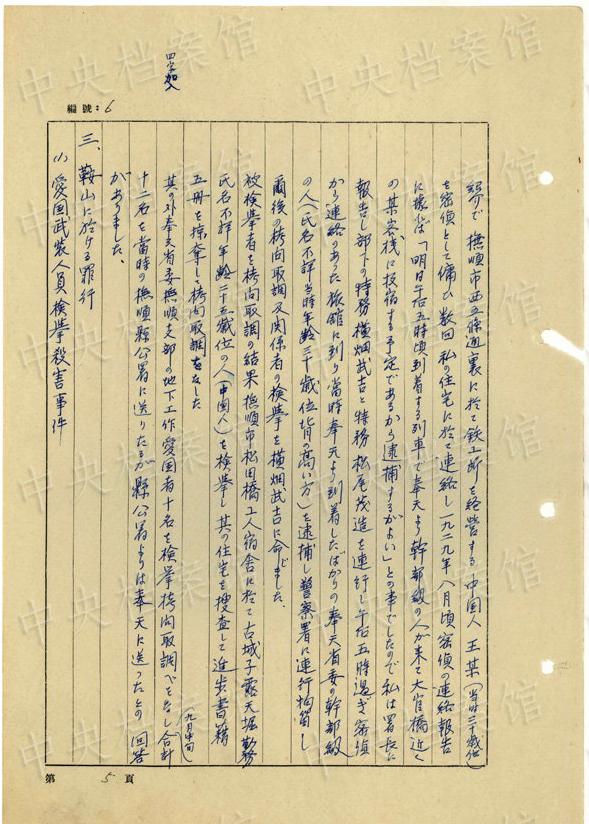 四字加入
編號：6
紹介で撫順市西五條通裏に於て鉄工所を経営する中国人王某（当時三十歳位）
を密偵として傭ひ数回私の住宅に於て連絡し一九二九年八月頃密偵の連絡報告
に據れば「明日午后五時頃到着する列車で奉天より幹部級の人が来て大官橋近く
の某客桟に投宿する予定であるから逮捕するがよい」との事でしたので私は署長に
報告し部下の特務横畑武吉と特務松尾茂造を連行し午后五時過ぎ密偵
から連絡のあった旅館に到り当時奉天より到着したばかりの奉天省委の幹部級
の人（氏名不詳当時年齢三十歳位背の高い方）を逮捕し警察署に連行拘留し
爾後の拷問取調及関係者の検挙を横畑武吉に命じました。
被検挙者を拷問取調の結果撫順市松田橋工人宿舎に於て古城子露天堀勤務
氏名不詳年齢二十五歳位の人（中国人）を検挙し其の住宅を捜査して進歩書籍
五冊を掠奪し拷問取調をなした
其の外奉天省委撫順支部の地下工作愛国者十名を検挙拷問取調べをなし合計
（九月中旬）
十二名を当時の撫順縣公署に送りたるが縣公署よりは奉天に送ったとの回答
がありました。
三、鞍山に於ける罪行
(1)愛国武装人員検挙殺害事件
第 5 頁
中央档案馆